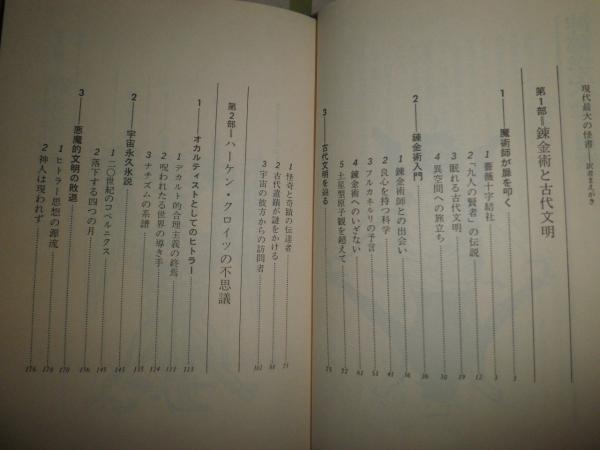 現代最大の怪書──訳者まえがき
第1部＝錬金術と古代文明
1──魔術師が扉を叩く 3
1 薔薇十字結社 3
2 「九人の賢者」の伝説 12
3 眠れる古代文明 19
4 異空間への旅立ち 30
2──錬金術入門 36
1 錬金術師との出会い 36
2 良心を持つ科学 41
3 フルカネルリの予言 51
4 錬金術へのいざない 61
5 土星型原子観を超えて 72
3──古代文明を甦る 75
1 怪奇と奇蹟の伝達者 75
2 古代遺蹟が謎をかける 88
3 宇宙の彼方からの訪問者 102
第2部＝ハーケン・クロイツの不思議
1──オカルティストとしてのヒトラー 113
1 デカルト的合理主義の終焉
2 呪われたる世界の導き手
3 ナチズムの系譜
2──宇宙永久氷説 145
1 二〇世紀のコペルニクス 145
2 落下する四つの月 156
3──悪魔的文明の敗退 170
1 ヒトラー思想の源流 170
2 神人は現われず 176